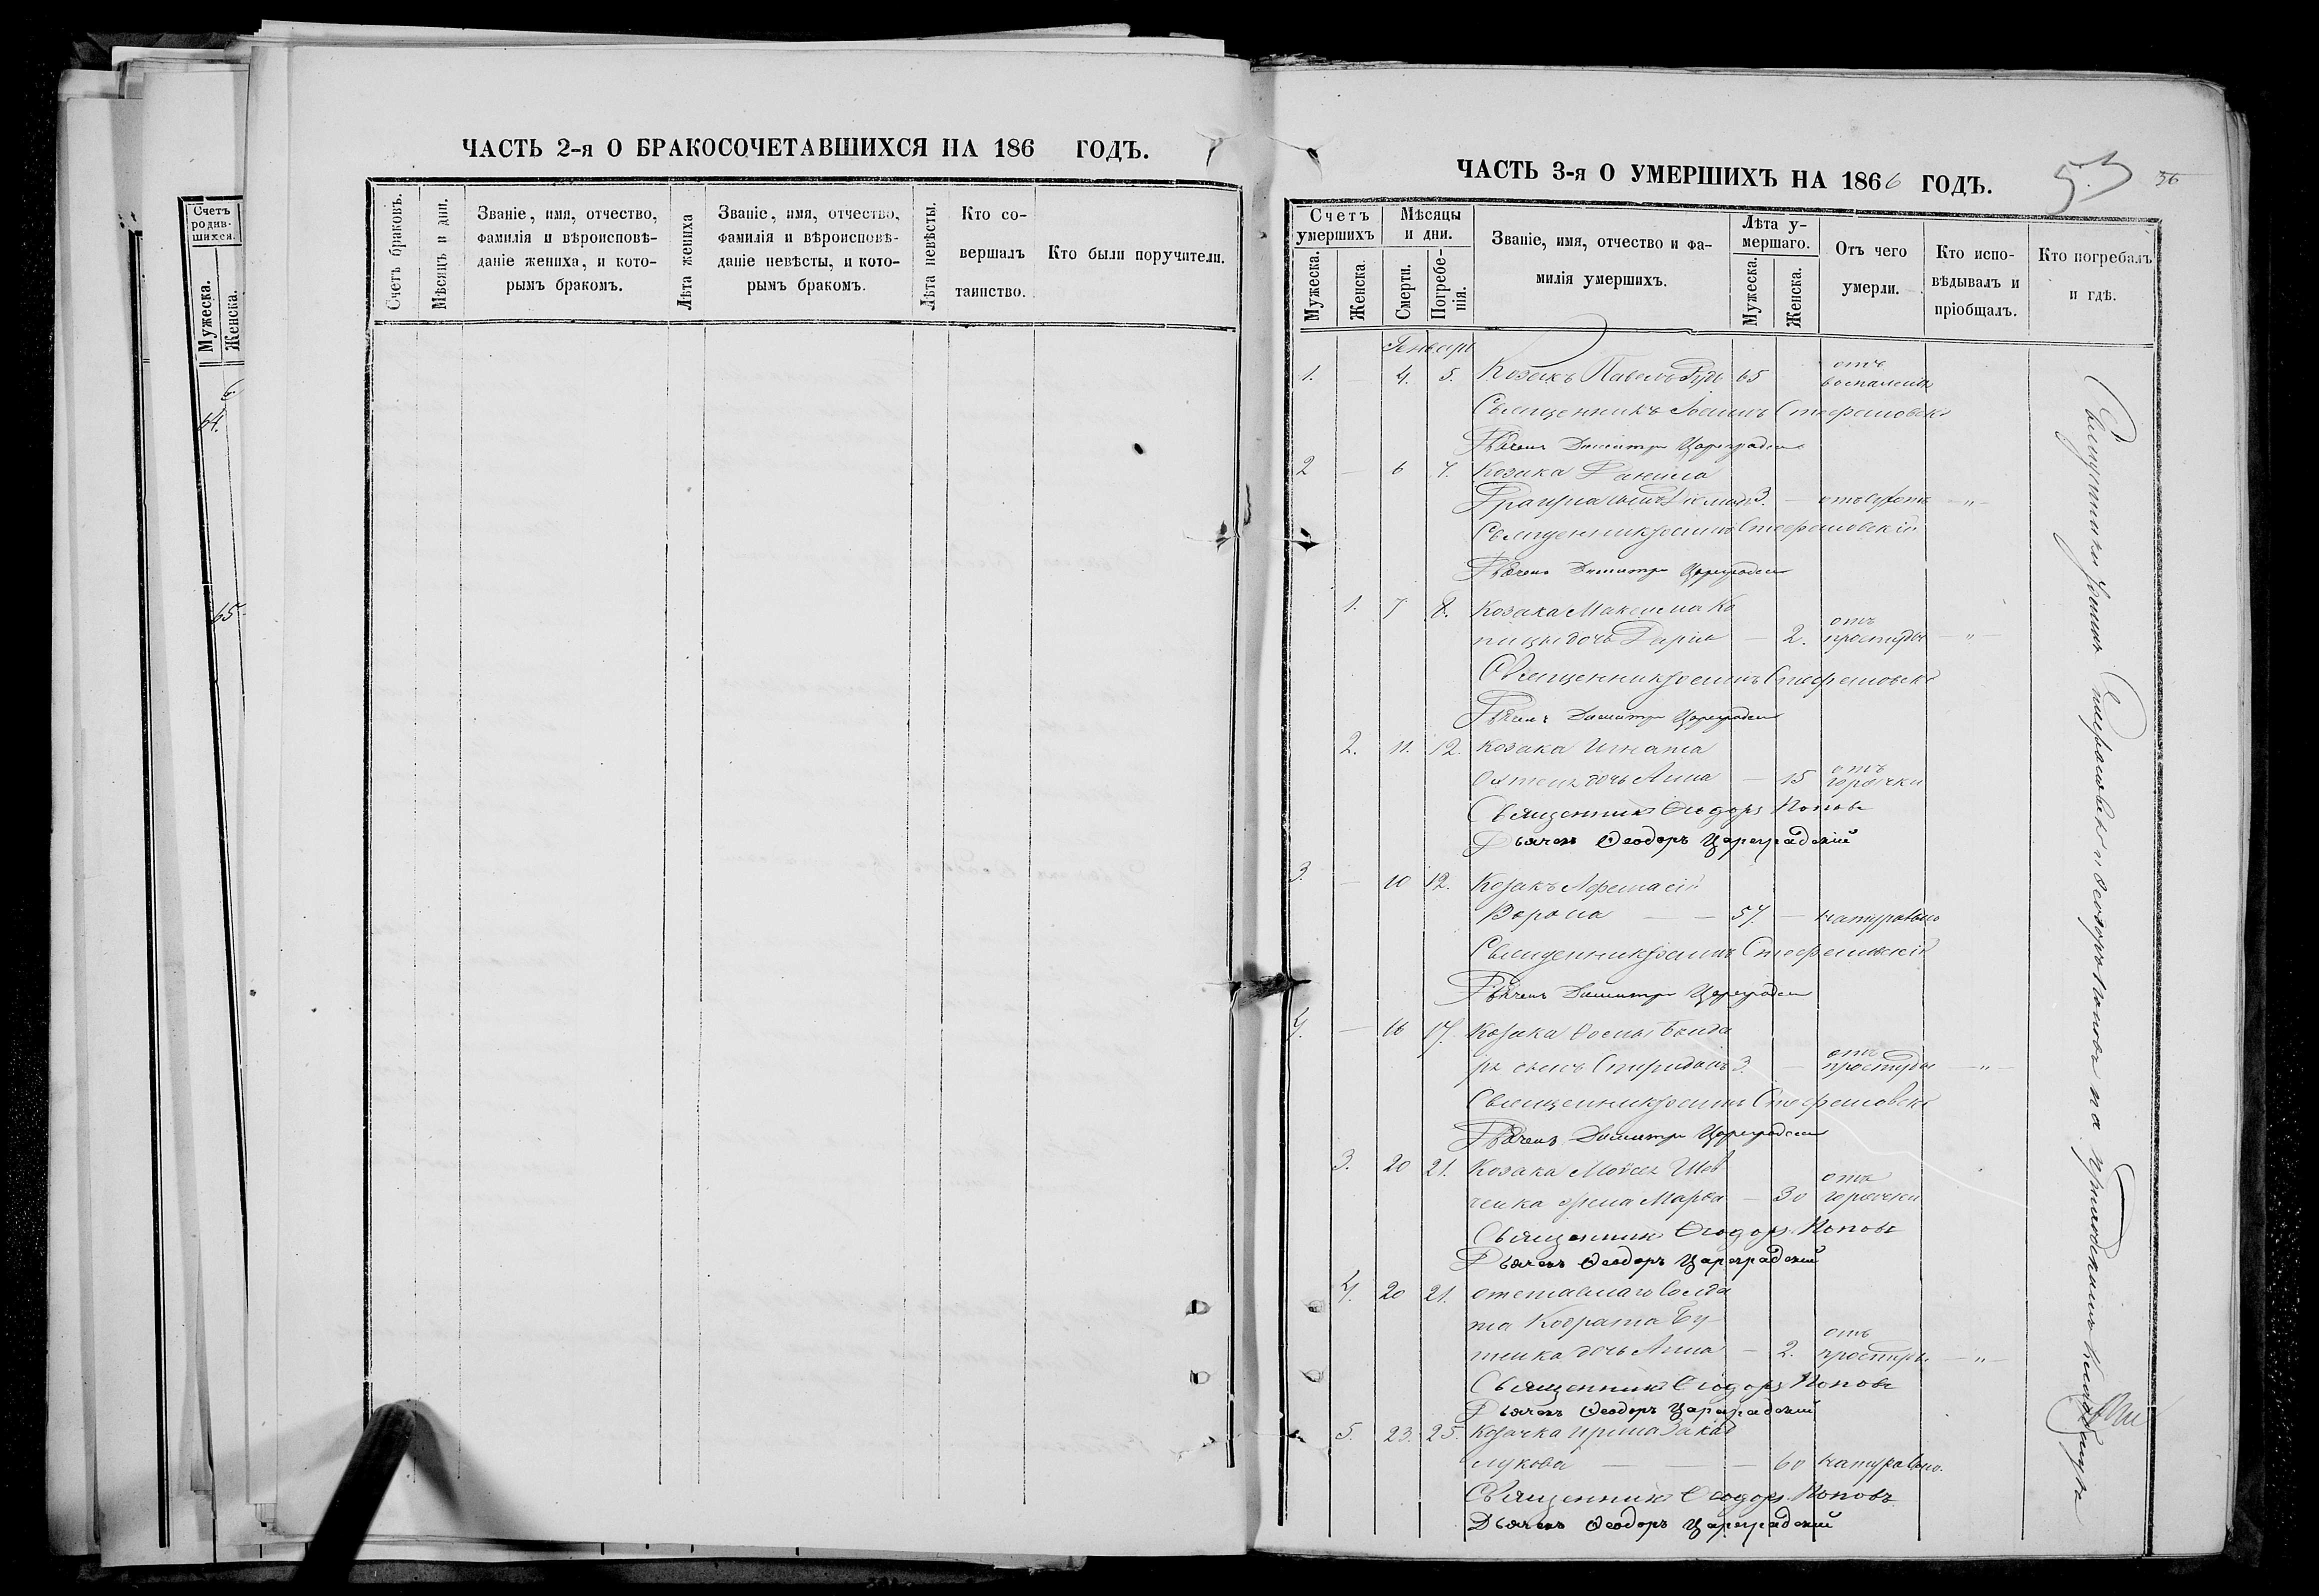 Счетъ
родив-
шихся.
Мужеска.
Женска.
64.
65.
ЧАСТЬ 2-я О БРАКОСОЧЕТАВШИХСЯ НА 186 ГОДЪ.
Счетъ браковъ.
Мѣсяцъ и дни.
Званіе, имя, отчество,
фамилія и вѣроисповѣ-
даніе жениха, и кото-
рымъ бракомъ.
Лѣта жениха
Званіе, имя, отчество,
фамилія и вѣроисповѣ-
даніе невѣсты, и кото-
рымъ бракомъ.
Лѣта невѣсты.
Кто со-
вершалъ
таинство.
Кто были поручители.
ЧАСТЬ 3-я О УМЕРШИХЪ НА 1866 ГОДЪ.
53
36
Счетъ
умершихъ
Мужеска.
Женска.
Мѣсяцы
и дни.
Смерти.
Погребе-
нія.
Званіе, имя, отчество и фа-
милія умершихъ.
Лѣта у-
мершаго.
Мужеска.
Женска.
Отъ чего
умерли.
Кто испо-
вѣдывалъ и
пріобщалъ.
Кто погребалъ
и гдѣ.
Генварь
отъ
1. — 4. 5. Козакъ Павелъ 65 воспаленія
Священникъ Іоаннъ Стефановскі
Дьячекъ Димитри Цареградски
2 — 6 7. Козака Даніила
сынъ 3. —
Священникъ Іоаннъ Стефановскій
Дьячекъ Димитри Цареградски
1. 7 8. Козака Максима Ко
отъ
пицы дочь Дарія — 2. простуды — „ —
Священникъ Іоаннъ Стефановскі
Дьячекъ Димитри Цареградски
2. 11. 12. Козака Игната
отъ
дочь Анна — 15 горячки
Священникъ Ѳеодоръ Поповъ
Дьячекъ Ѳеодоръ Цареградскій
3. — 10 12. Козакъ Афанасій
Ворона — — 57. — натурально
Священникъ Іоаннъ Стефановскій
Дьячекъ Димитри Цареградски
4. — 16 17. Козака Бонда
отъ
ря сынъ Спиридонъ 3. — простуды — „ —
Священникъ Іоаннъ Стефановскі
Дьячекъ Димитри Цареградски
3. 20 21. Козака Моисея Шев
отъ
ченка жена Марѳа — 30 горячки
Священникъ Ѳеодоръ Поповъ
Дьячекъ Ѳеодоръ Цареградскій
4. 20 21. отставнаго Солда
та Кодрата Бу
отъ
тенка дочь Анна — 2. простуды — „ —
Священникъ Ѳеодоръ Поповъ
Дьячекъ Ѳеодоръ Цареградскій
5. 23. 25. Козачка Ирина
лукова — — — 60 натурально.
Священникъ Ѳеодоръ Поповъ
Дьячекъ Ѳеодоръ Цареградскій
Священники Іоаннъ Стефановскій и Ѳеодоръ Поповъ на приходскомъ кладбищѣ